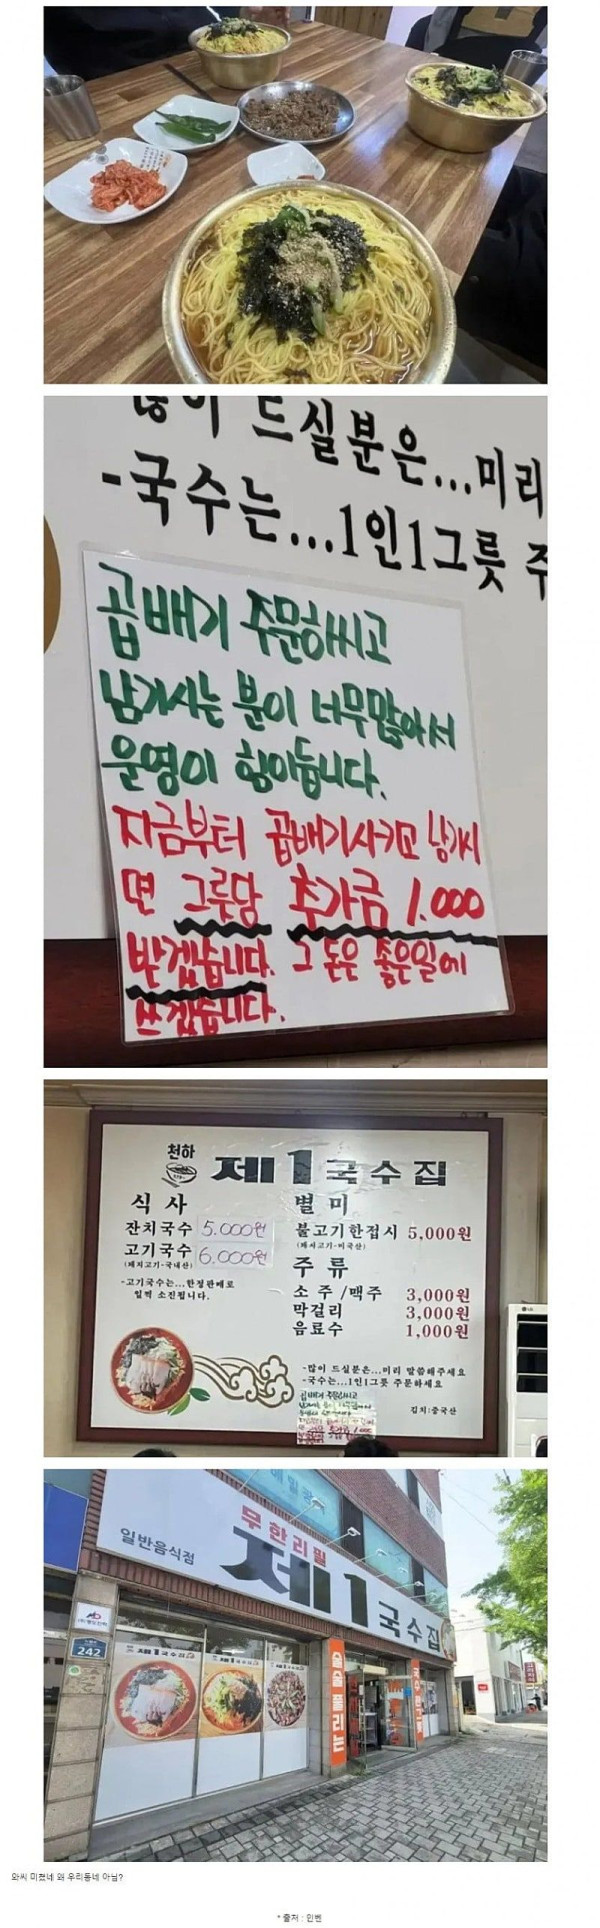 많이 드실분은...미리
-국수는...1인1그릇 주
곱배기 주문하시고
남기시는 분이 너무많아서
운영이 힘이듭니다.
지금부터 곱배기시키고 남기시
면 그릇당 추가금 1.000
받겠습니다. 그 돈은 좋은일에
쓰겠습니다.
천하
제1국수집
식사
잔치국수 5.000원
고기국수 6.000원
(돼지고기-국내산)
-고기국수는...한정판매로
일찍 소진됩니다.
별미
불고기한접시 5,000원
(돼지고기-미국산)
주류
소주/맥주 3,000원
막걸리 3,000원
음료수 1,000원
-많이 드실분은...미리 말씀해주세요
-국수는...1인1그릇 주문하세요
곱배기 주문하시고
김치:중국산
무한리필
일반음식점
제1국수집
242
제1국수집
제1국수집
제1국수집
술술 풀리는
와씨 미쳤네 왜 우리동네 아님?
* 출처 : 인벤